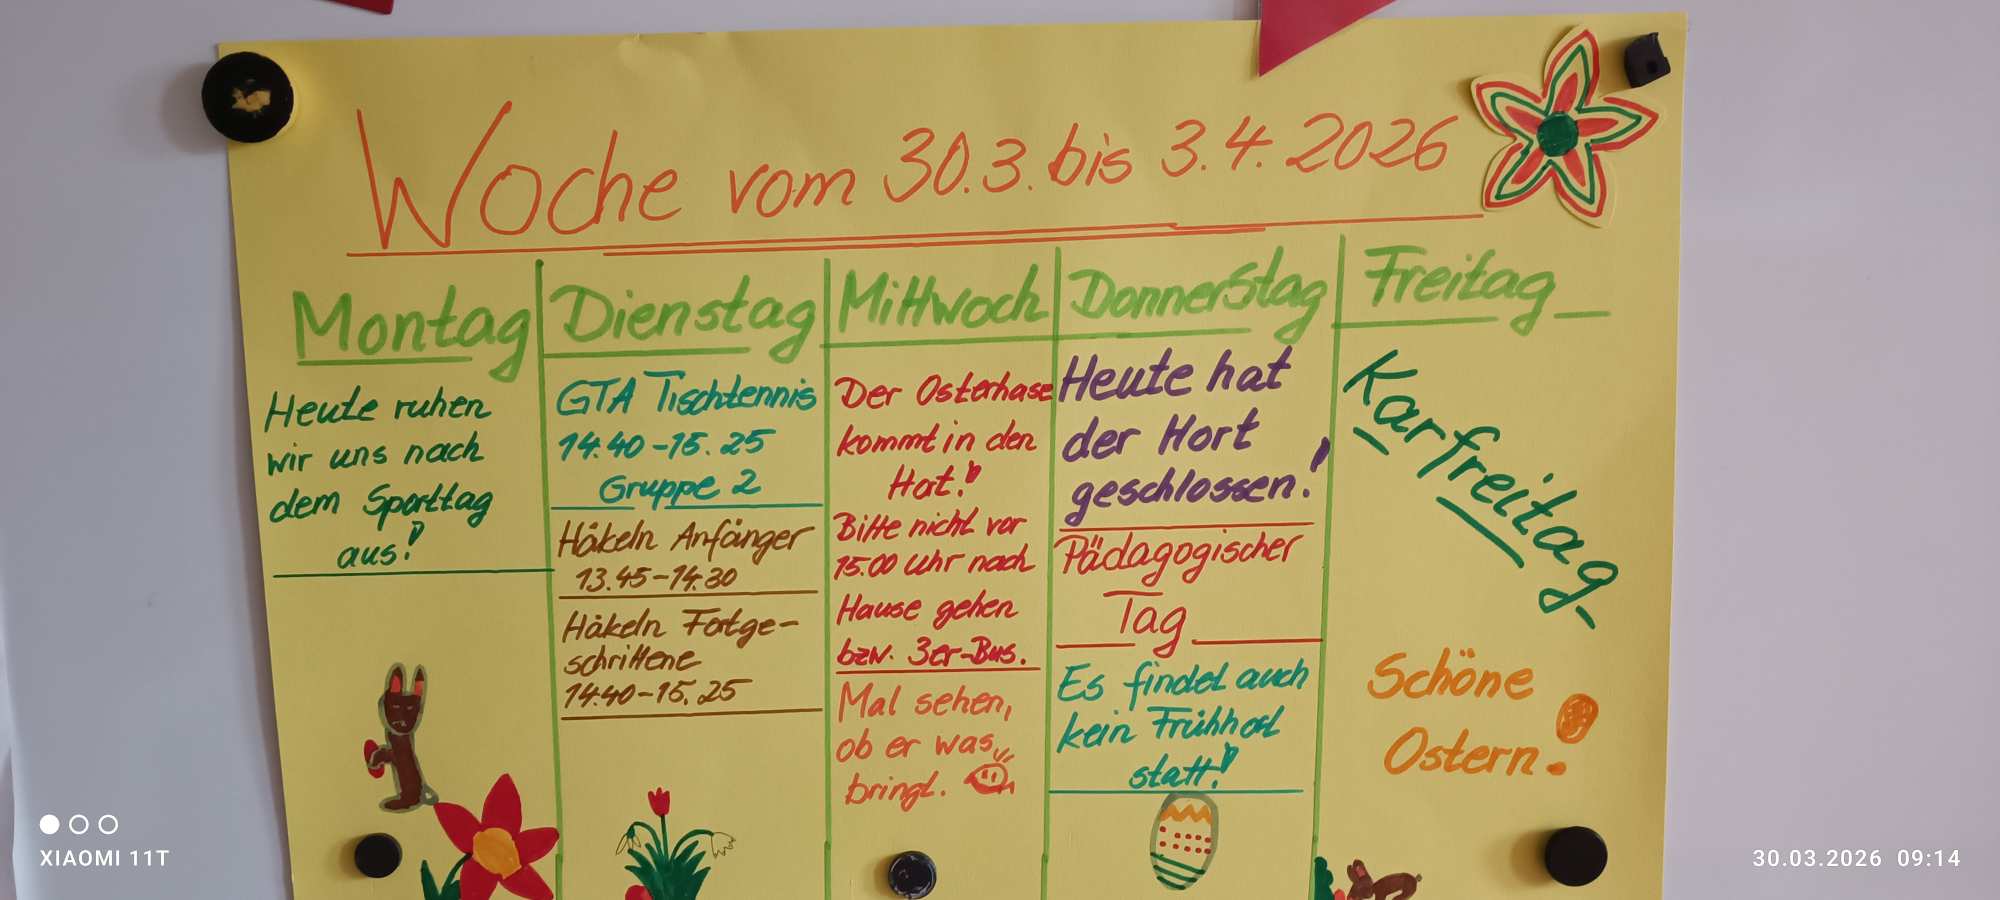 Woche vom 30.3. bis 3.4. 2026
Montag
Heute ruhen
wir uns nach
dem Sporttag
aus!
Dienstag
GTA Tischtennis
14.40-15.25
Gruppe 2
Häkeln Anfänger
13.45-14.30
Häkeln Fortge-
schrittene
14.40-15.25
Mittwoch
Der Osterhase
kommt in den
Hort!
Bitte nicht vor
15.00 Uhr nach
Hause gehen
bzw. 3er-Bus.
Mal sehen,
ob er was
bringt.
Donnerstag
Heute hat
der Hort
geschlossen!
Pädagogischer
Tag
Es findet auch
kein Frühhort
statt!
Freitag
Karfreitag
Schöne
Ostern!
XIAOMI 11T
30.03.2026 09:14